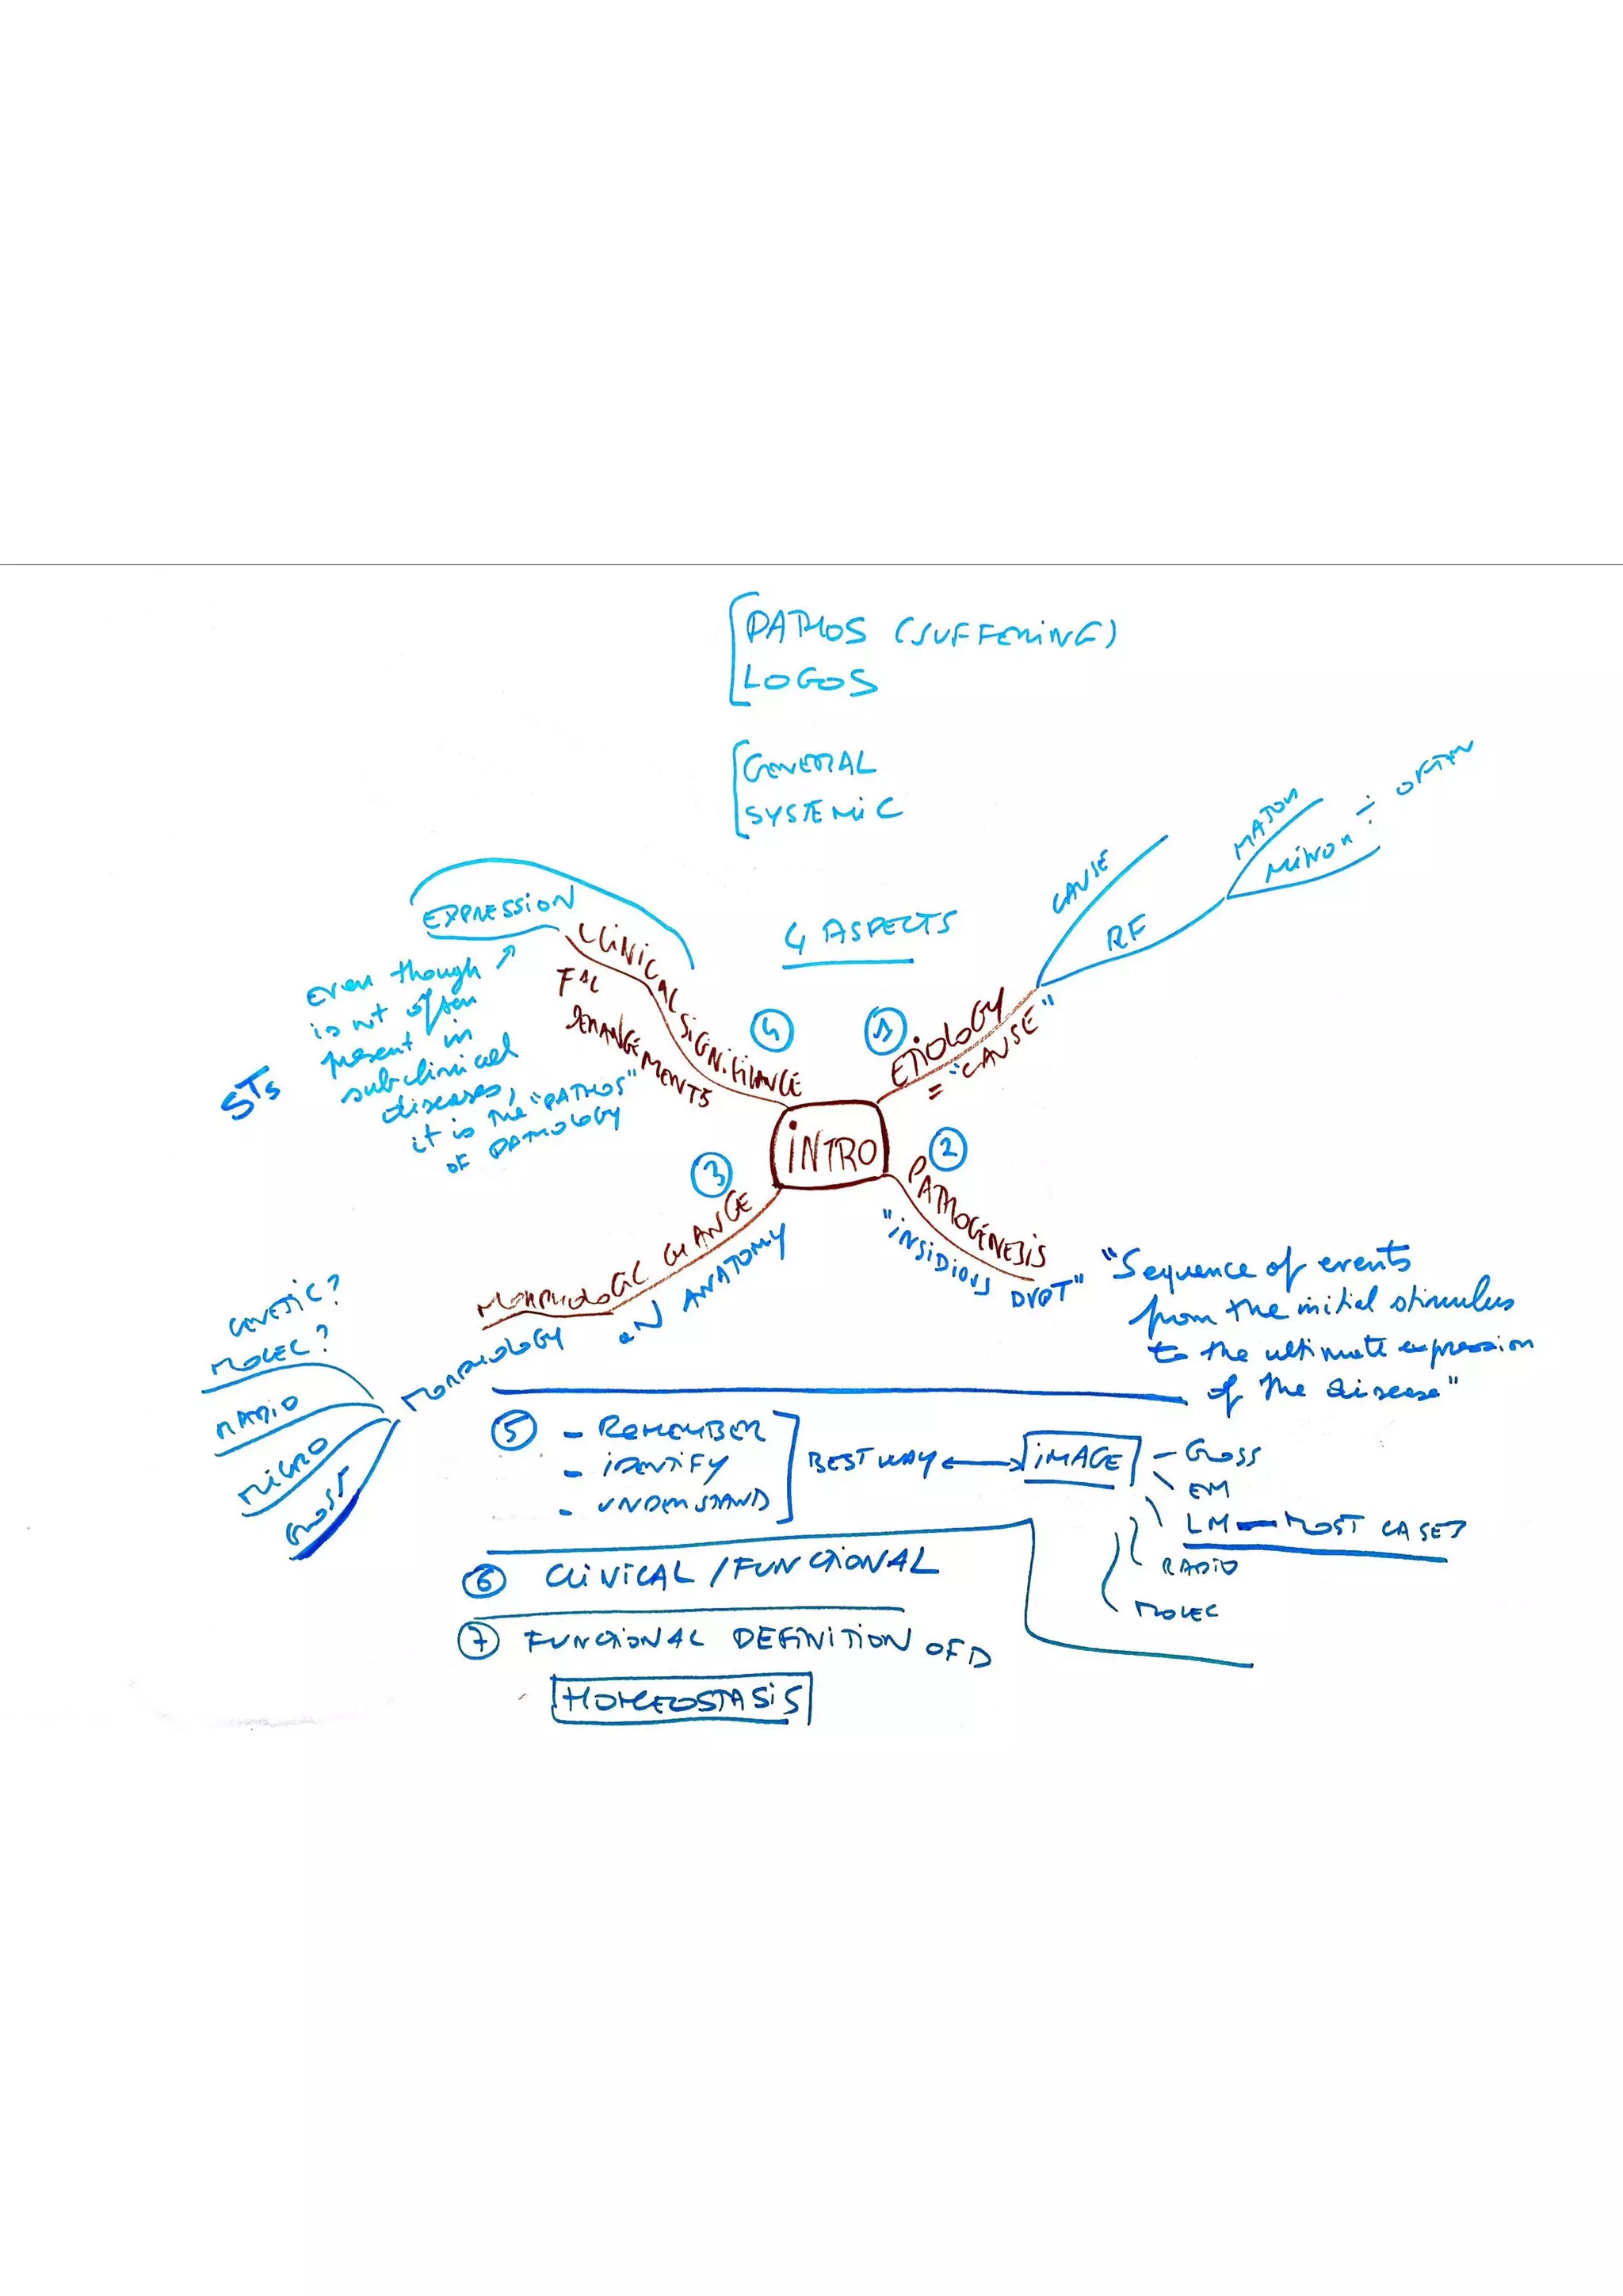 PATHOS (SUFFERING)
LOGOS
GENERAL
SYSTEMIC
4 ASPECTS
INTRO
1
ETIOLOGY
= "CAUSE"
CAUSE
RF
MAJOR
MINOR ÷ OFTEN
2
PATHOGENESIS
"INSIDIOUS DVPT"
"Sequence of events
from the initial stimulus
to the ultimate expression
of the disease"
3
MORPHOLOGIC CHANGE
ANATOMY
MORPHOLOGY
GENETIC?
MOLEC?
RADIO
MICRO
GROSS
4
CLINICAL SIGNIFICANCE
FAL
DERANGEMENTS
EXPRESSION
Even though
is not often
present in
subclinical
diseases,
it is the "PATHOS"
OF PATHOLOGY
STs
5 - REMEMBER
- IDENTIFY
- UNDERSTAND
BEST WAY
IMAGE
- GROSS
EM
LM — MOST CASES
RADIO
MOLEC
6 CLINICAL / FUNCTIONAL
7 FUNCTIONAL DEFINITION OF D
HOMEOSTASIS